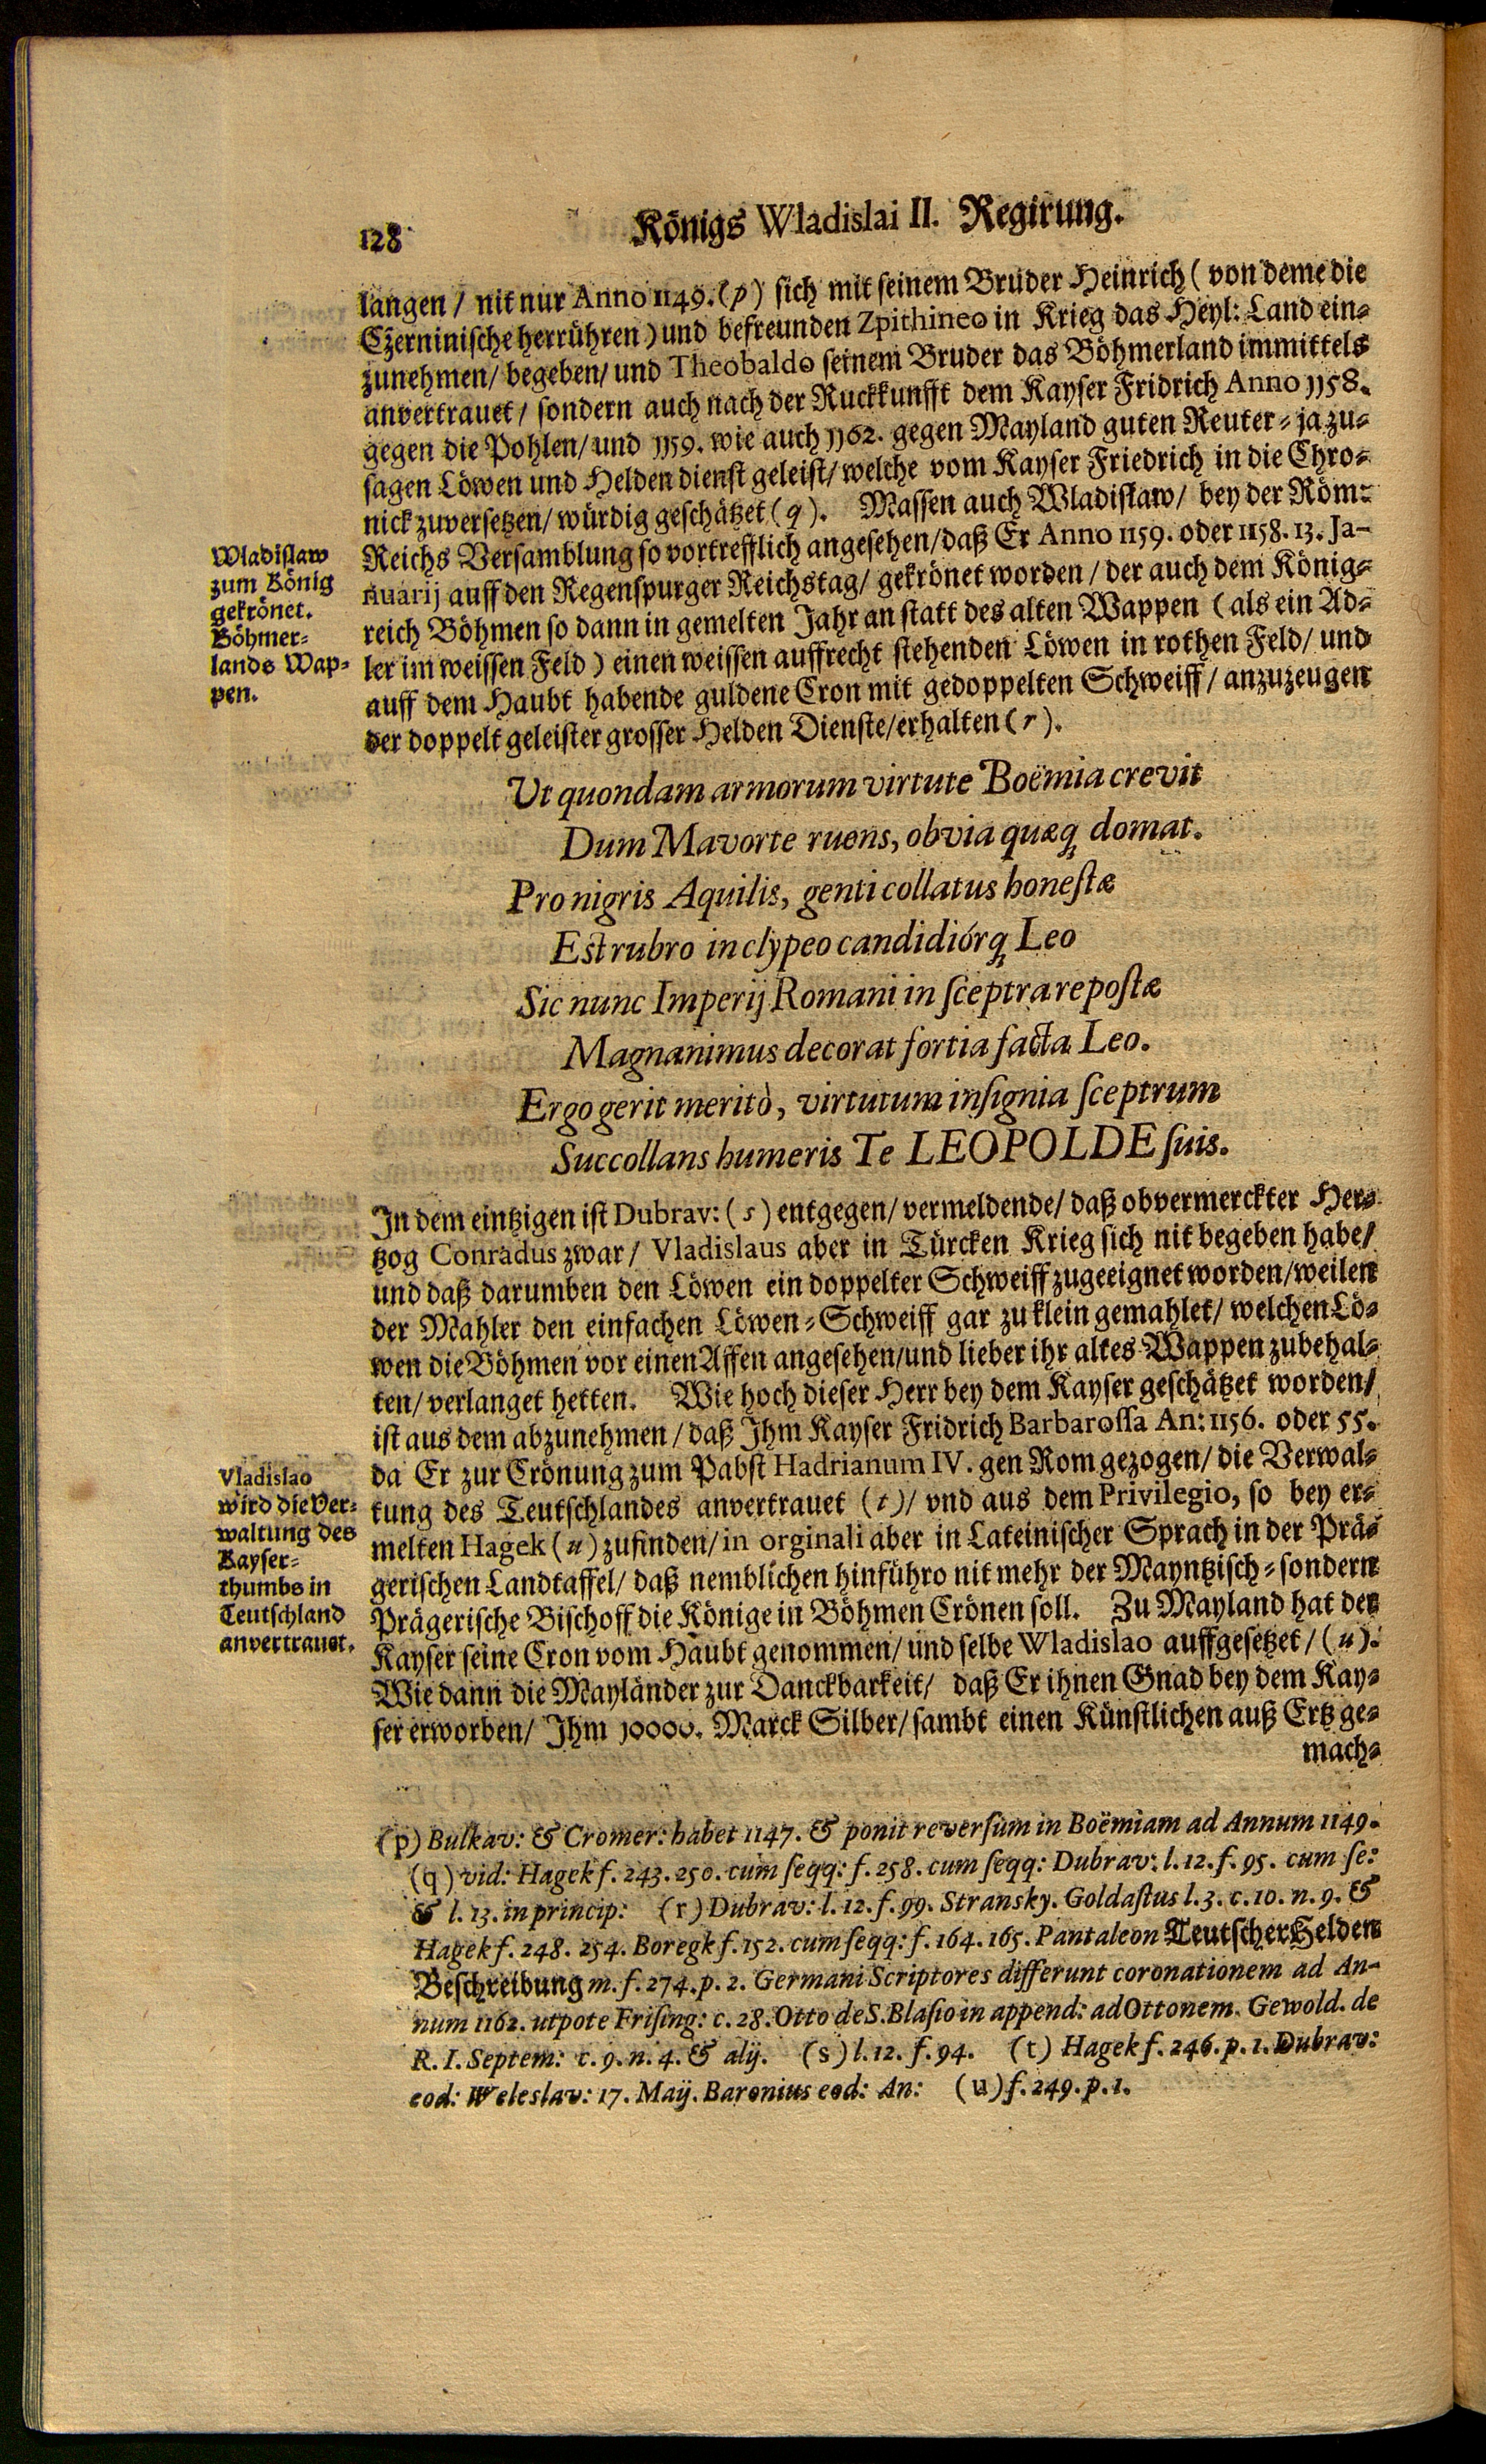 128
Königs Wladislai II. Regirung.
langen / nit nur Anno 1149. (p) sich mit seinem Bruder Heinrich ( von deme die
Czerninische herrühren ) und befreunden Zpithineo in Krieg das Heyl: Land ein-
zunehmen / begeben / und Theobaldo seinem Bruder das Böhmerland immittels
anvertrauet / sondern auch nach der Ruckkunfft dem Kayser Fridrich Anno 1158.
gegen die Pohlen / und 1159. wie auch 1162. gegen Mayland guten Reuter- ja zu-
sagen Löwen und Helden dienst geleist / welche vom Kayser Friedrich in die Chro-
nick zuversetzen / würdig geschätzet (q). Massen auch Wladislaw / bey der Röm-
Reichs Versamblung so vortrefflich angesehen / daß Er Anno 1159. oder 1158. 13. Ja-
nuarij auff den Regenspurger Reichstag / gekrönet worden / der auch dem König-
reich Böhmen so dann in gemelten Jahr an statt des alten Wappen ( als ein Ad-
ler im weissen Feld ) einen weissen auffrecht stehenden Löwen in rothen Feld / und
auff dem Haubt habende guldene Cron mit gedoppelten Schweiff / anzuzeugen
der doppelt geleister grosser Helden Dienste / erhalten (r).
Wladislaw
zum König
gekrönet.
Böhmer-
lands Wap-
pen.
Ut quondam armorum virtute Boëmia crevit
Dum Mavorte ruens, obvia quæq́ domat.
Pro nigris Aquilis, genti collatus honestæ
Est rubro in clypeo candidiórq́ Leo
Sic nunc Imperij Romani in sceptra repostæ
Magnanimus decorat fortia facta Leo.
Ergo gerit meritò, virtutum insignia sceptrum
Succollans humeris Te LEOPOLDE suis.
In dem eintzigen ist Dubrav: (s) entgegen / vermeldende / daß obvermerckter Her-
tzog Conradus zwar / Vladislaus aber in Türcken Krieg sich nit begeben habe /
und daß darumben den Löwen ein doppelter Schweiff zugeeignet worden / weilen
der Mahler den einfachen Löwen-Schweiff gar zu klein gemahlet / welchen Lö-
wen die Böhmen vor einen Affen angesehen / und lieber ihr altes Wappen zubehal-
ten / verlanget hetten. Wie hoch dieser Herr bey dem Kayser geschätzet worden /
ist aus dem abzunehmen / daß Ihm Kayser Fridrich Barbarossa An: 1156. oder 55.
da Er zur Crönung zum Pabst Hadrianum IV. gen Rom gezogen / die Verwal-
tung des Teutschlandes anvertrauet (t) / vnd aus dem Privilegio, so bey er-
melten Hagek (u) zufinden / in orginali aber in Lateinischer Sprach in der Prä-
gerischen Landtaffel / daß nemblichen hinführo nit mehr der Mayntzisch- sondern
Prägerische Bischoff die Könige in Böhmen Crönen soll. Zu Mayland hat der
Kayser seine Cron vom Haubt genommen / und selbe Wladislao auffgesetzet / (u).
Wie dann die Mayländer zur Danckbarkeit / daß Er ihnen Gnad bey dem Kay-
ser erworben / Ihm 10000. Marck Silber / sambt einen Künstlichen auß Ertz ge-
mach-
Vladislao
wird die Ver-
waltung des
Kayser-
thumbs in
Teutschland
anvertrauet.
(p) Bulkav: & Cromer: habet 1147. & ponit reversum in Boëmiam ad Annum 1149.
(q) vid: Hagek f. 243. 250. cum seqq: f. 258. cum seqq: Dubrav: l. 12. f. 95. cum se:
& l. 13. in princip: (r) Dubrav: l. 12. f. 99. Stransky. Goldastus l. 3. c. 10. n. 9. &
Hagek f. 248. 254. Boregk f. 152. cum seqq: f. 164. 165. Pantaleon Teutscher Helden
Beschreibung m. f. 274. p. 2. Germani Scriptores differunt coronationem ad An-
num 1162. utpote Frising: c. 28. Otto de S. Blasio in append: ad Ottonem. Gewold. de
R. I. Septem: c. 9. n. 4. & alij. (s) l. 12. f. 94. (t) Hagek f. 246. p. 1. Dubrav:
eod: Weleslav: 17. Maij. Baronius eod: An: (u) f. 249. p. 1.